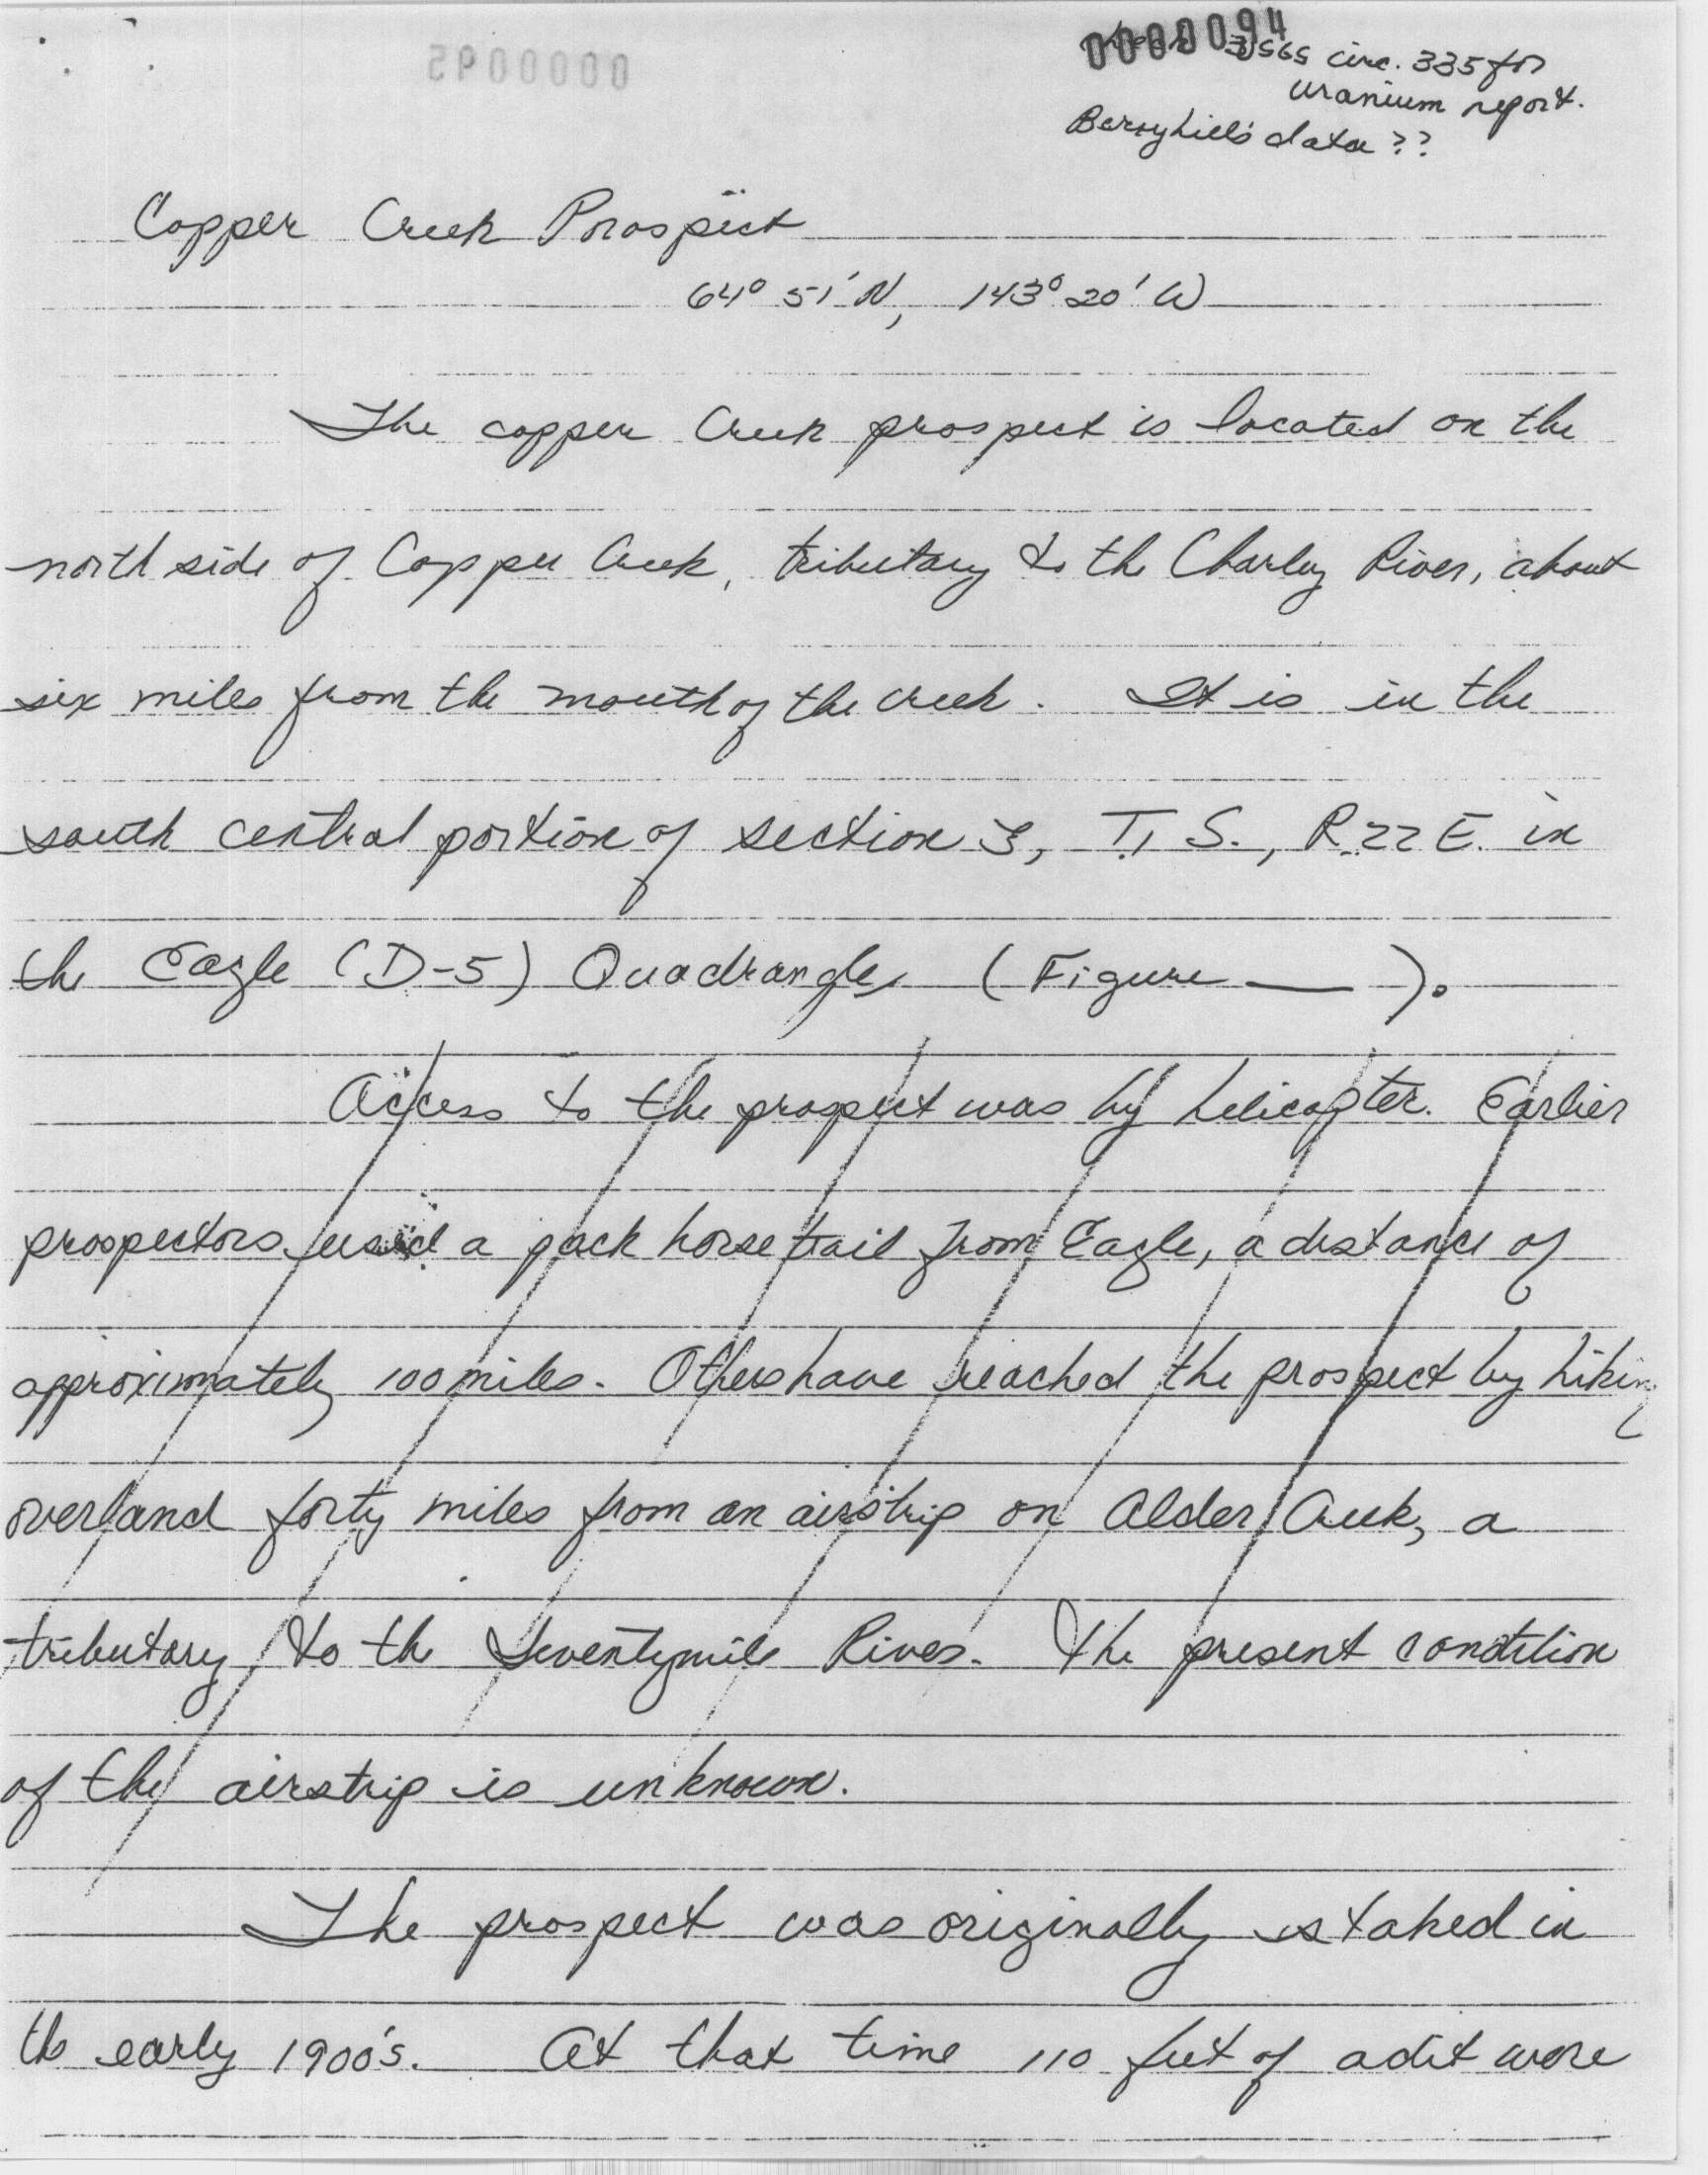 0000094
0000095
USGS circ. 335 for
uranium report.
Berryhill's data ??
Copper Creek Prospect
64° 51' N, 143° 20' W
The copper Creek prospect is located on the
north side of Copper Creek, tributary to the Charley River, about
six miles from the mouth of the creek. It is in the
south central portion of section 3, T.1 S., R.22 E. in
the Eagle (D-5) Quadrangle, (Figure ___).
Access to the prospect was by helicopter. Earlier
prospectors used a pack horse trail from Eagle, a distance of
approximately 100 miles. Others have reached the prospect by hiking
overland forty miles from an airstrip on Alder Creek, a
tributary to the Seventymile River. The present condition
of the airstrip is unknown.
The prospect was originally staked in
the early 1900's. At that time 110 feet of adit were